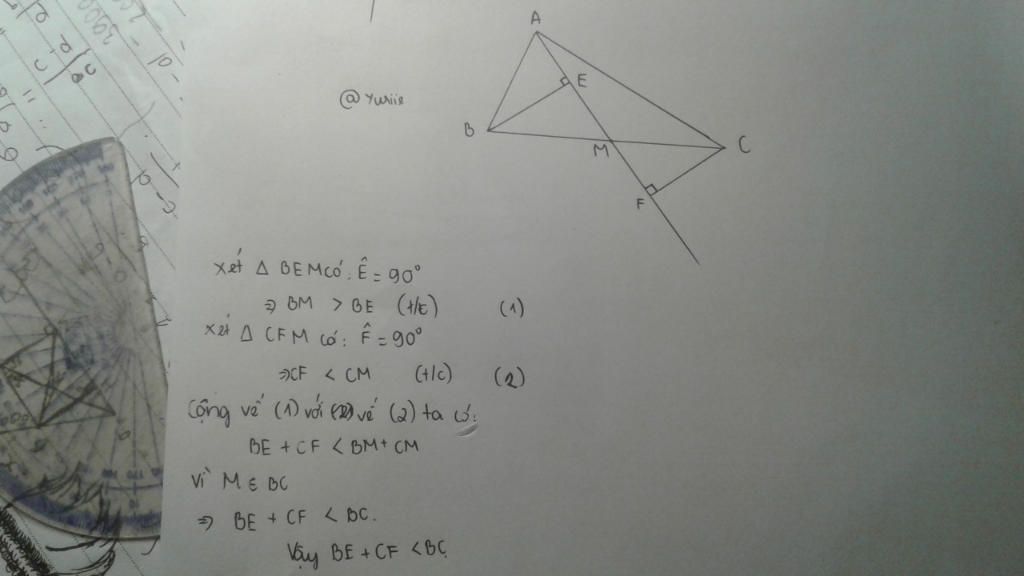 A
@ Yuriie
E
B
M
C
F
xét Δ BEM có: Ê = 90°
⇒ BM > BE (t/c) (1)
xét Δ CFM có: F̂ = 90°
⇒ CF < CM (t/c) (2)
Cộng vế (1) với vế (2) ta có:
BE + CF < BM + CM
Vì M ∈ BC
⇒ BE + CF < BC.
Vậy BE + CF < BC